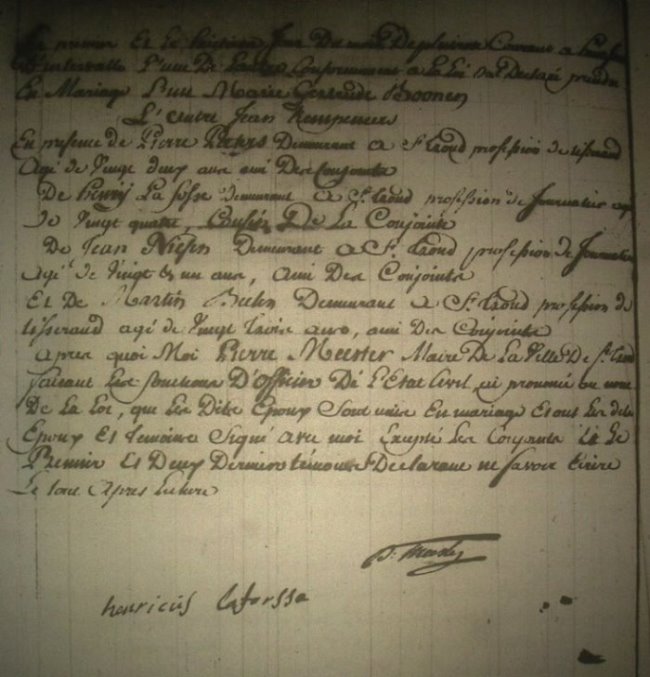 Le premier Et le huitième Jour Du mois De pluviose Courant a
D'intervalle L'une De L'autre Conformement a La Loi ont Declaré prendre
En Mariage L'une Marie Gertrude Boonen
L'autre Jean Kempeneers
En presence de Pierre Peters Demeurant a St. Traud profession de tisserand
agé de Vingt deux ans ami Des Conjoints
De Henrij La fosse demeurant a St. Traud profession de Journalier agé
de Vingt quatre Cousin De La Conjointe
De Jean Niesen Demeurant a St. Traud profession de Journalier
agé de Vingt & un ans, ami Des Conjoints
Et De Martin Beelen Demeurant a St. Traud profession de
tisserand agé de Vingt trois ans, ami Des Conjoints
apres quoi Moi Pierre Meester Maire De La Ville De St. Traud
faisant Les fonctions D'officier De L'Etat Civil, ai prononcé au nom
De La Loi, que Les Dits Epoux Sont unis En mariage Et ont Les dits
Epoux Et temoins Signé avec moi Excepté Les Conjoints Et Le
Premier Et Deux Derniers témoins Declarant ne Savoir Ecrire
Le tout apres Lecture
henricus Lafossa